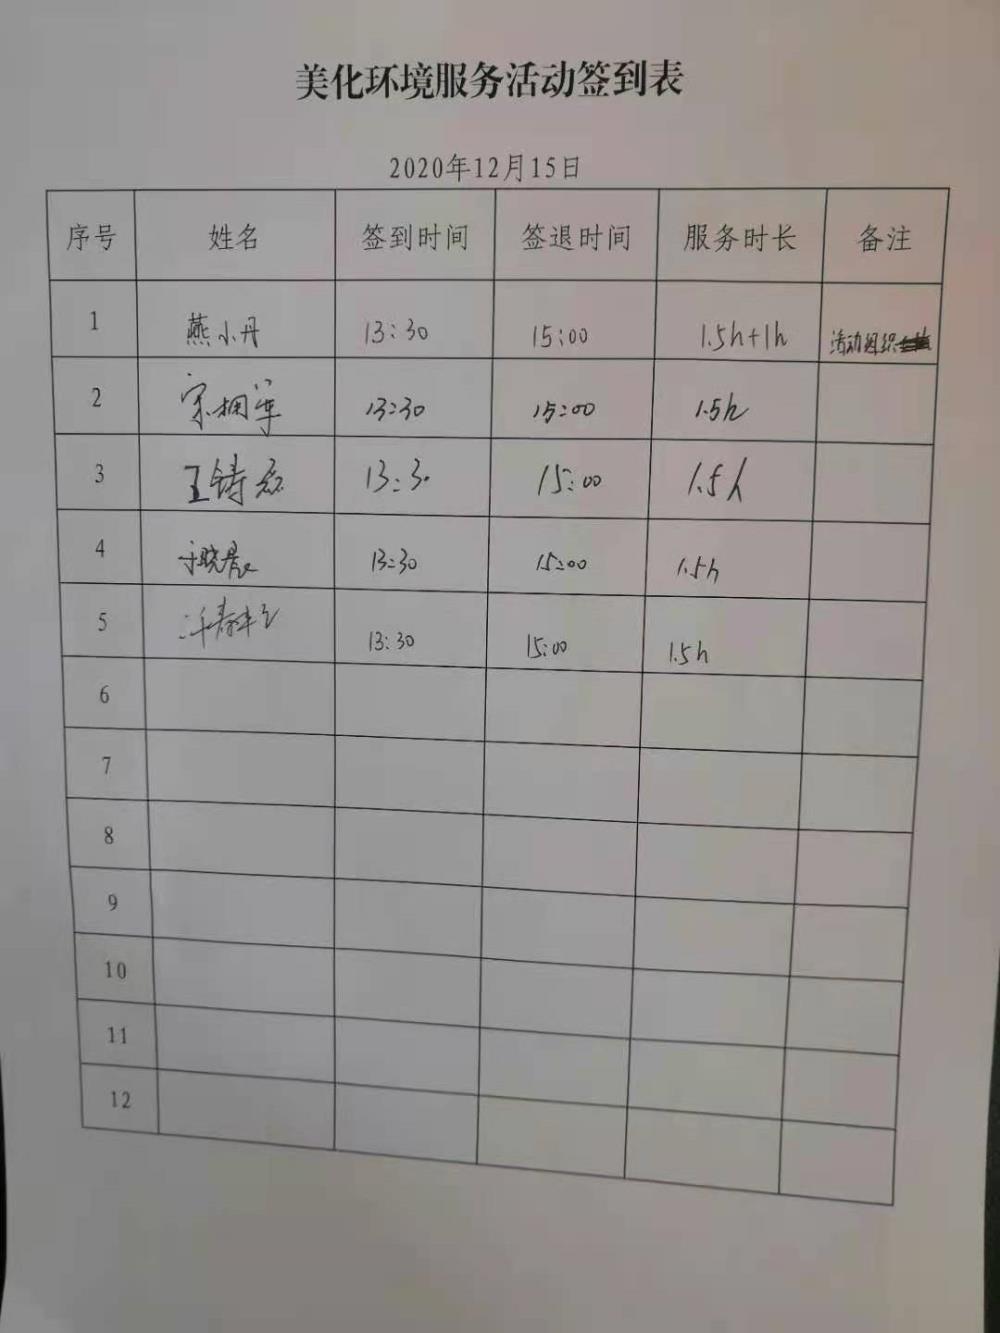 美化环境服务活动签到表
2020年12月15日
序号 姓名 签到时间 签退时间 服务时长 备注
1 燕小丹 13:30 15:00 1.5h+1h 活动组织
2 宋拥军 13:30 15:00 1.5h
3 王铸 13:30 15:00 1.5h
4 于晓晨 13:30 15:00 1.5h
5 13:30 15:00 1.5h
6
7
8
9
10
11
12